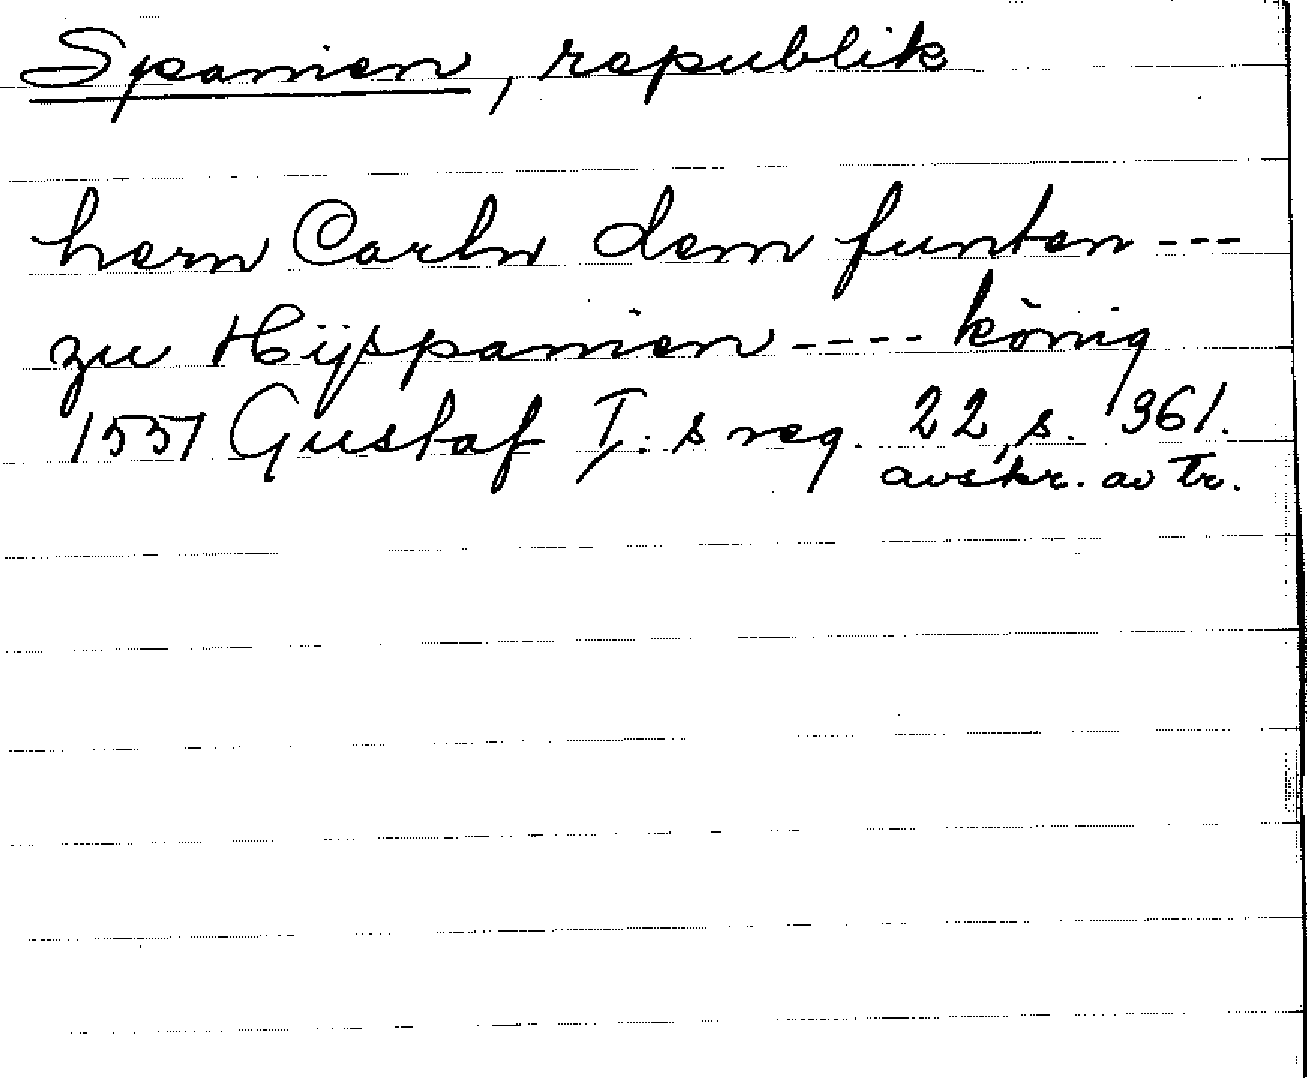 Spanien, republik
hern Carln dem funten ---
zu Hÿspanien ---- könig
1551 Gustaf I:s reg. 22, s. 361.
avskr. av tr.